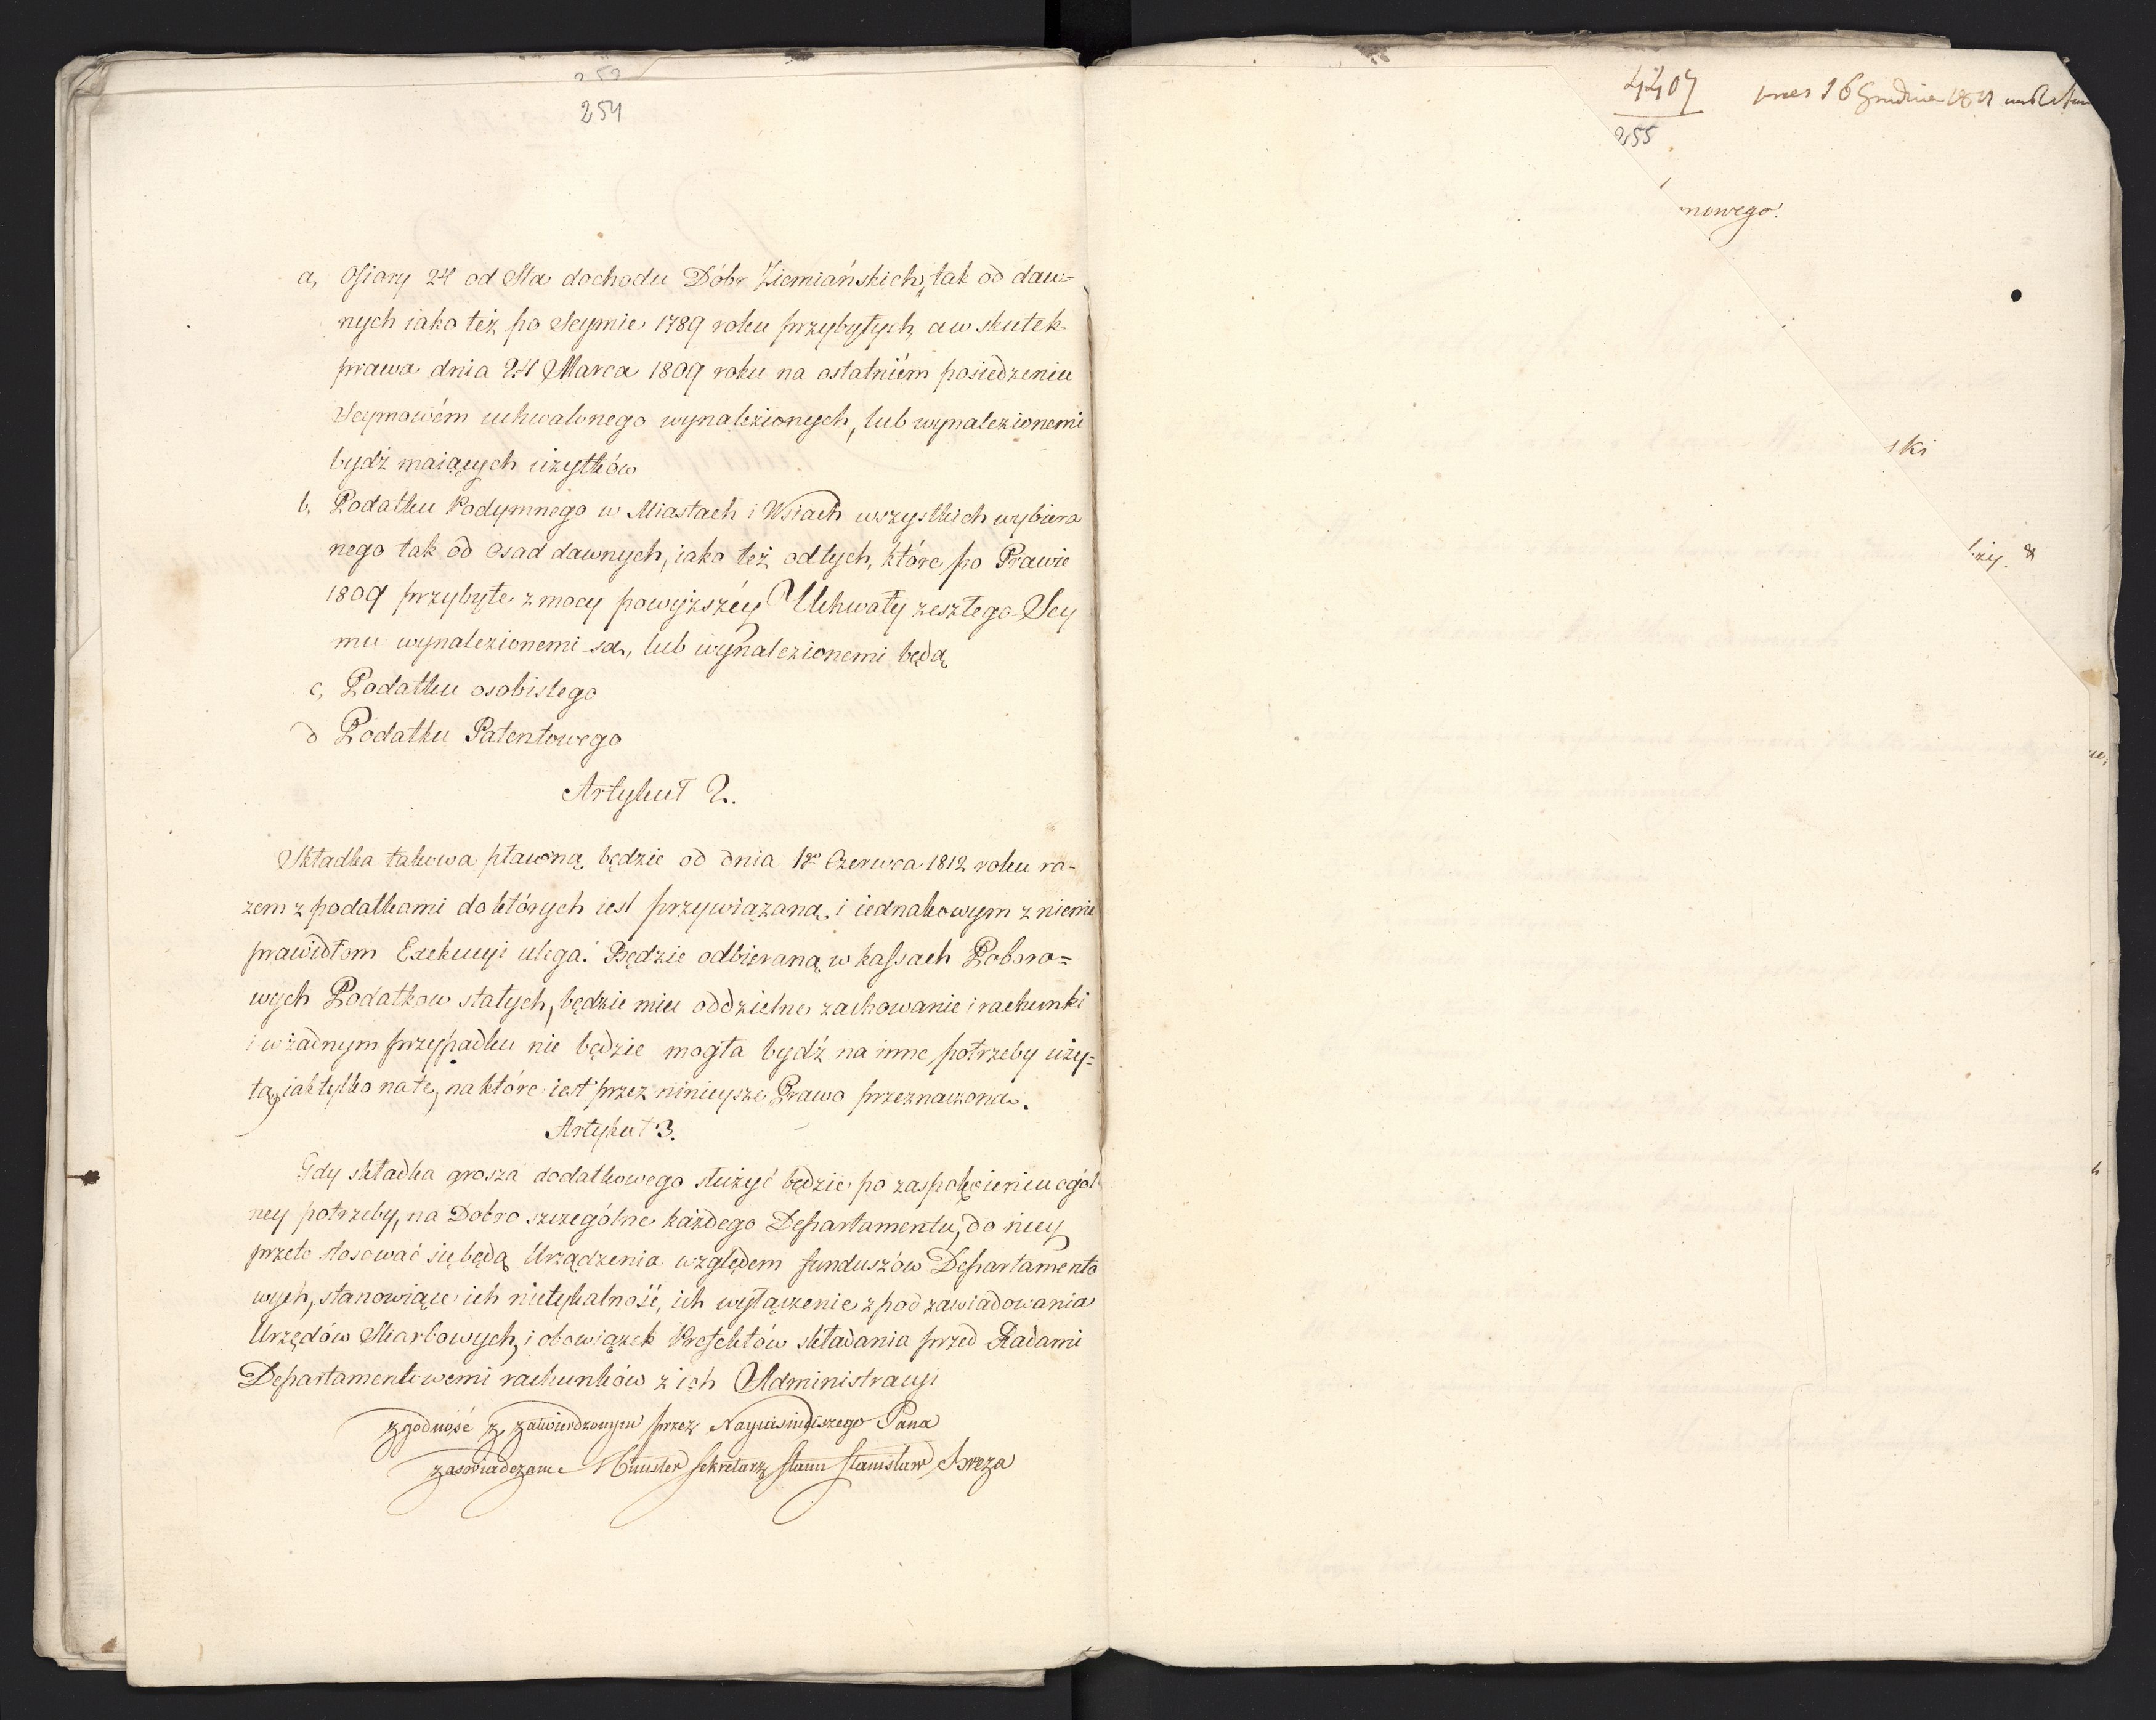 254
a, Ofiary 24 od Sta dochodu Dóbr Ziemiańskich, tak od daw=
nych iako też po Seymie 1789 roku przybyłych, a w skutek
prawa dnia 24 Marca 1809 roku na ostatniém posiedzeniu
Seymowém uchwalonego wynalezionych, lub wynalezionemi
bydź maiących użytków
b, Podatku Podymnego w Miastach i Wsiach wszystkich wybiera
nego tak od Osad dawnych, iako też od tych, które po Prawie
1809 przybyłe z mocy powyższéy Uchwały zeszłego Sey
mu wynalezionemi są, lub wynalezionemi będą
c, Podatku osobistego
d Podatku Patentowego
Artykuł 2.
Składka takowa płatną będzie od dnia 1º Czerwca 1812 roku ra-
zem z podatkami do których iest przywiązaną, i iednakowym z niemi
prawidłom Exekucyi ulega. Będzie odbieraną w kassach Poboro=
wych Podatkow stałych, będzie mieć oddzielne zachowanie i rachunki
i w żadnym przypadku nie będzie mogła bydź na inne potrzeby uży=
tą, iak tylko na te, na które iest przez ninieysze Prawo przeznaczona.
Artykuł 3.
Gdy składka grosza dodatkowego służyć będzie po zaspokoieniu ogól
ney potrzeby, na Dobro szczególne każdego Departamentu, do niey
przeto stosować się będą Urządzenia względem funduszów Departamento
wych, stanowiące ich nietykalność, ich wyłączenie z pod zawiadowania
Urzędów Skarbowych, i obowiązek Prefektów składania przed Radami
Departamentowemi rachunków z ich Administracyi
Zgodność z zatwierdzonym przez Nayiaśnieyszego Pana
zaświadczam Minister Sekretarz Stanu Stanisław Breza
4407
255
16 Grudnia 1811
nowego.
ski
ży. &